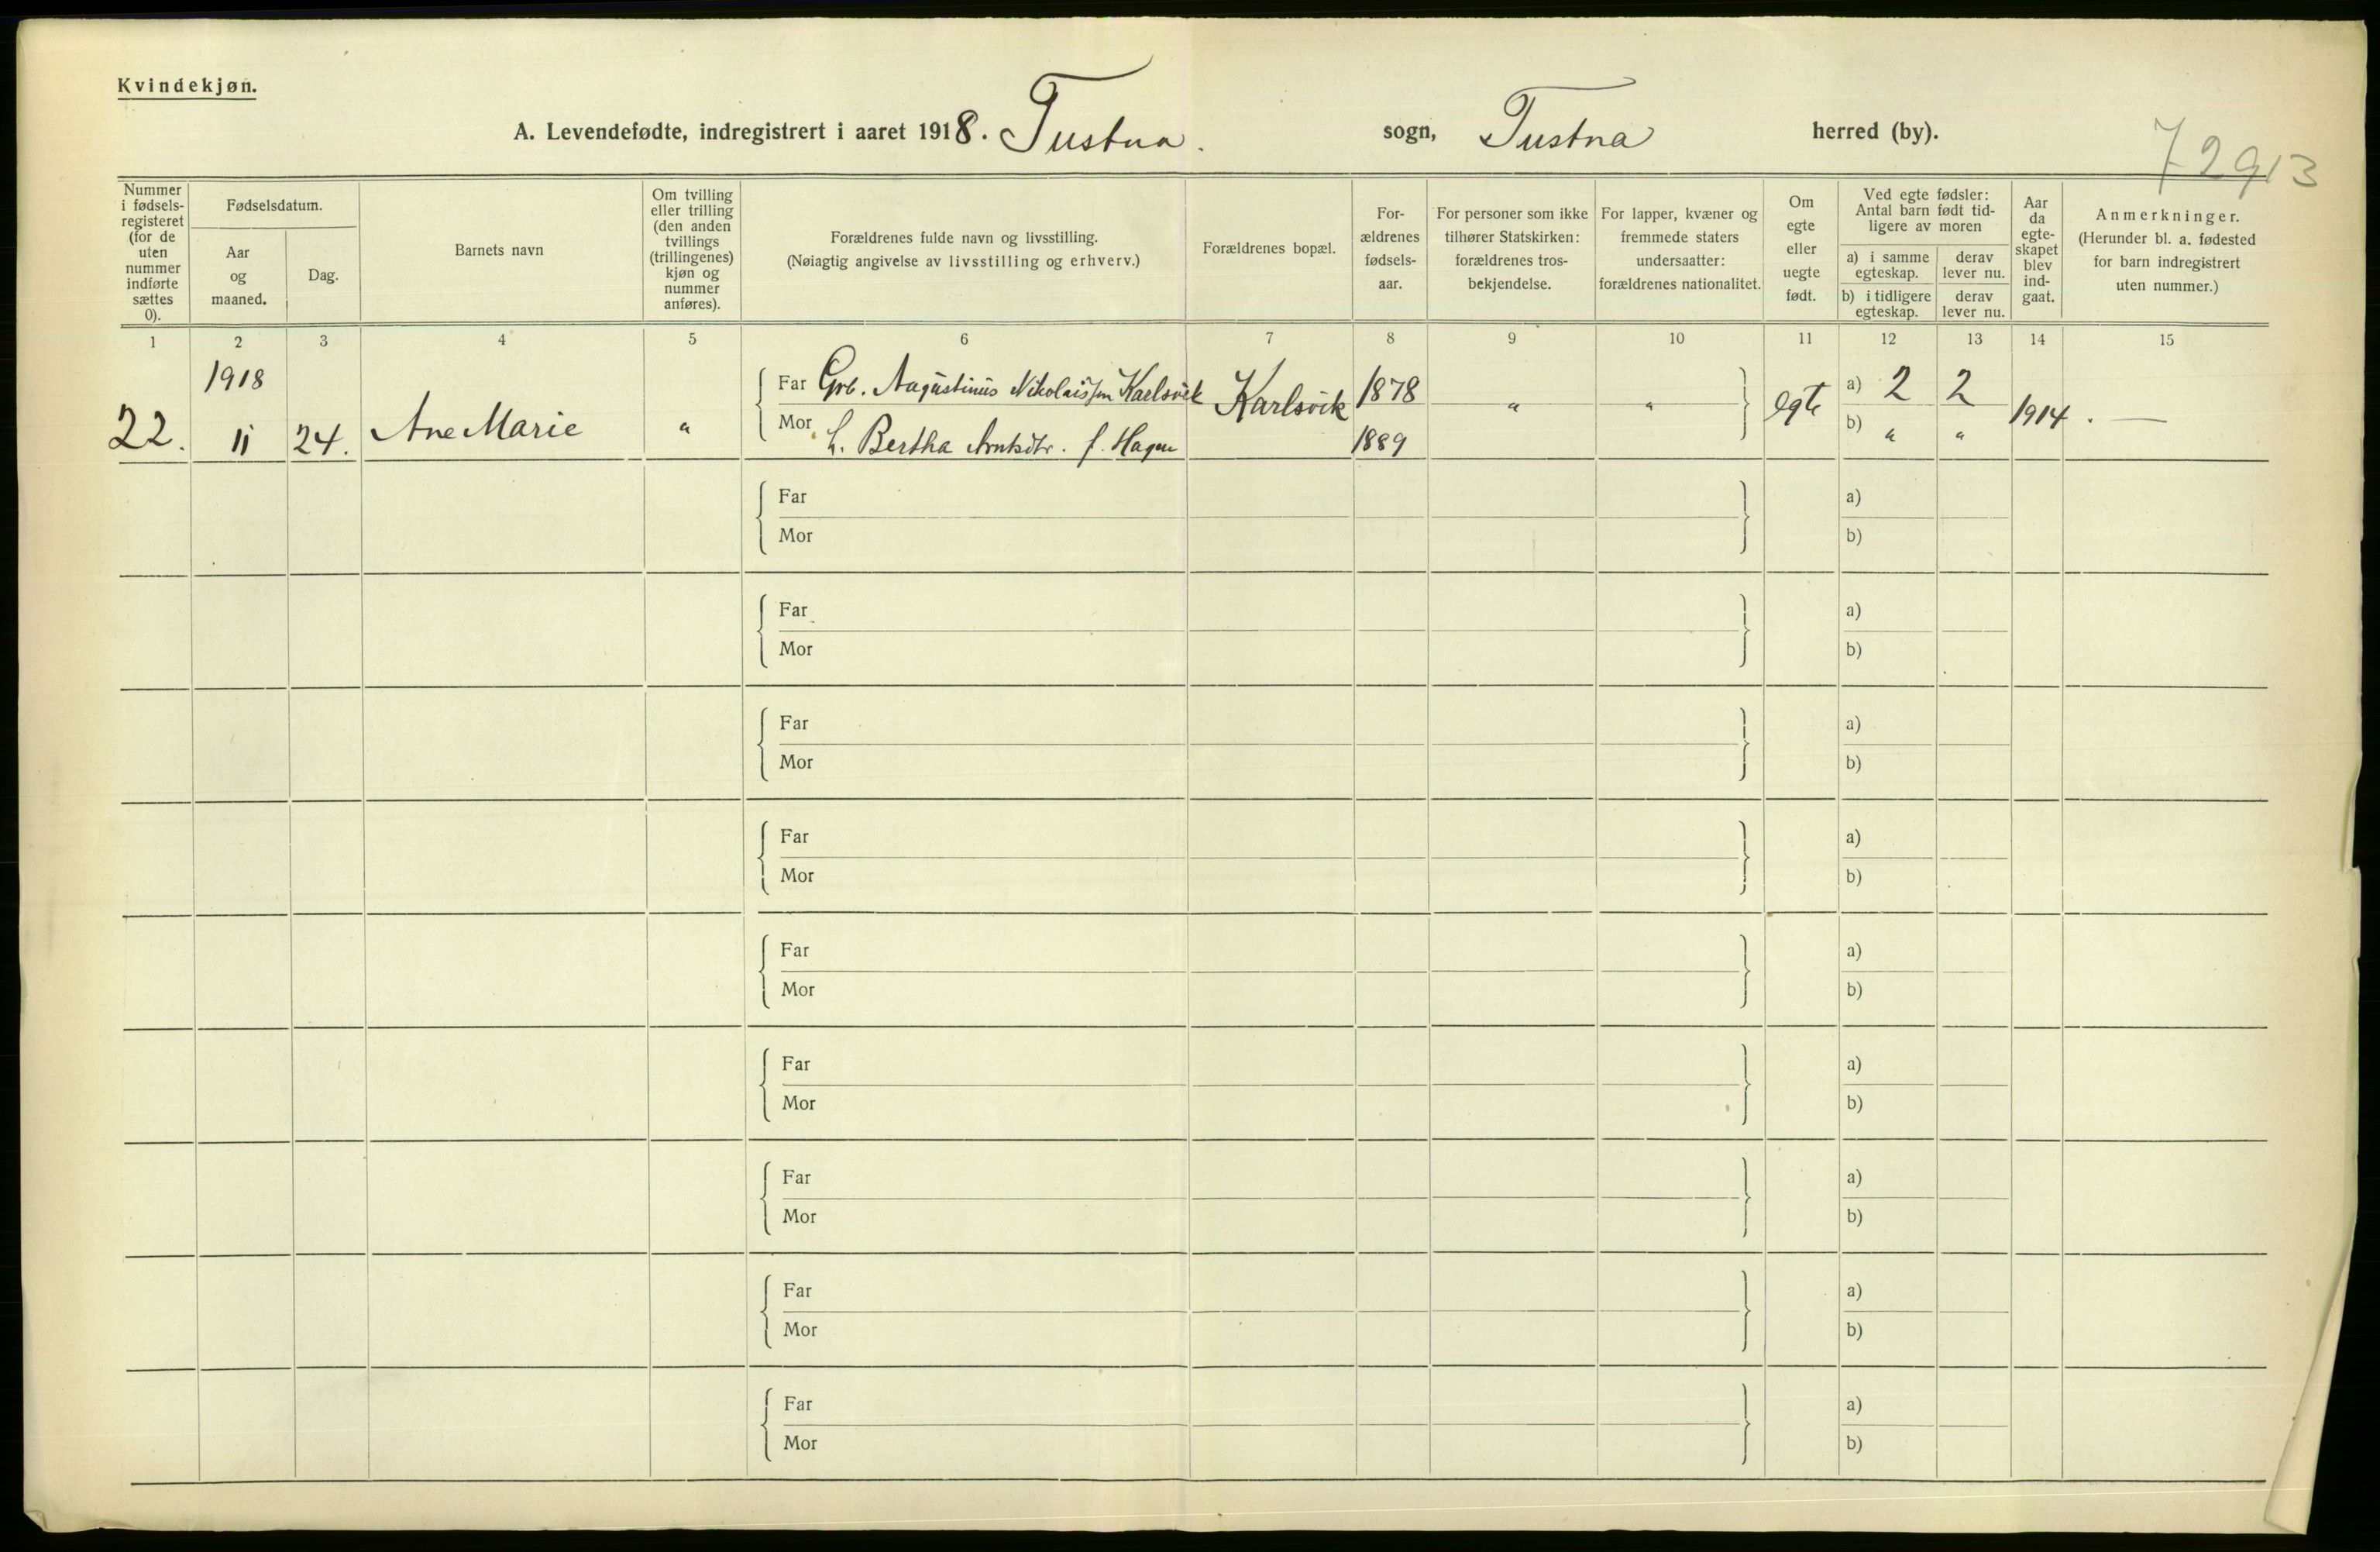 Kvindekjøn.
A. Levendefødte, indregistrert i aaret 1918. Tustna. sogn, Tustna herred (by).
72913
Nummer i fødsels-registeret (for de uten nummer indførte sættes 0).
Fødselsdatum.
Aar og maaned.
Dag.
Barnets navn
Om tvilling eller trilling (den anden tvillings (trillingenes) kjøn og nummer anføres).
Forældrenes fulde navn og livsstilling.
(Nøiagtig angivelse av livsstilling og erhverv.)
Forældrenes bopæl.
For-ældrenes fødsels-aar.
For personer som ikke tilhører Statskirken: forældrenes tros-bekjendelse.
For lapper, kvæner og fremmede staters undersaatter: forældrenes nationalitet.
Om egte eller uegte født.
Ved egte fødsler: Antal barn født tid-ligere av moren
a) i samme egteskap.
derav lever nu.
b) i tidligere egteskap.
derav lever nu.
Aar da egte-skapet blev ind-gaat.
Anmerkninger.
(Herunder bl. a. fødested for barn indregistrert uten nummer.)
1 2 3 4 5 6 7 8 9 10 11 12 13 14 15
1918
Far Grb. Augustinus Nikolaissen Karlsvik Karlsvik 1878 " " egte a) 2 2 1914. —
22. 11 24. Ane Marie "
Mor h. Bertha Arntsdtr. f. Hagen 1889 b) " "
Far a)
Mor b)
Far a)
Mor b)
Far a)
Mor b)
Far a)
Mor b)
Far a)
Mor b)
Far a)
Mor b)
Far a)
Mor b)
Far a)
Mor b)
Far a)
Mor b)